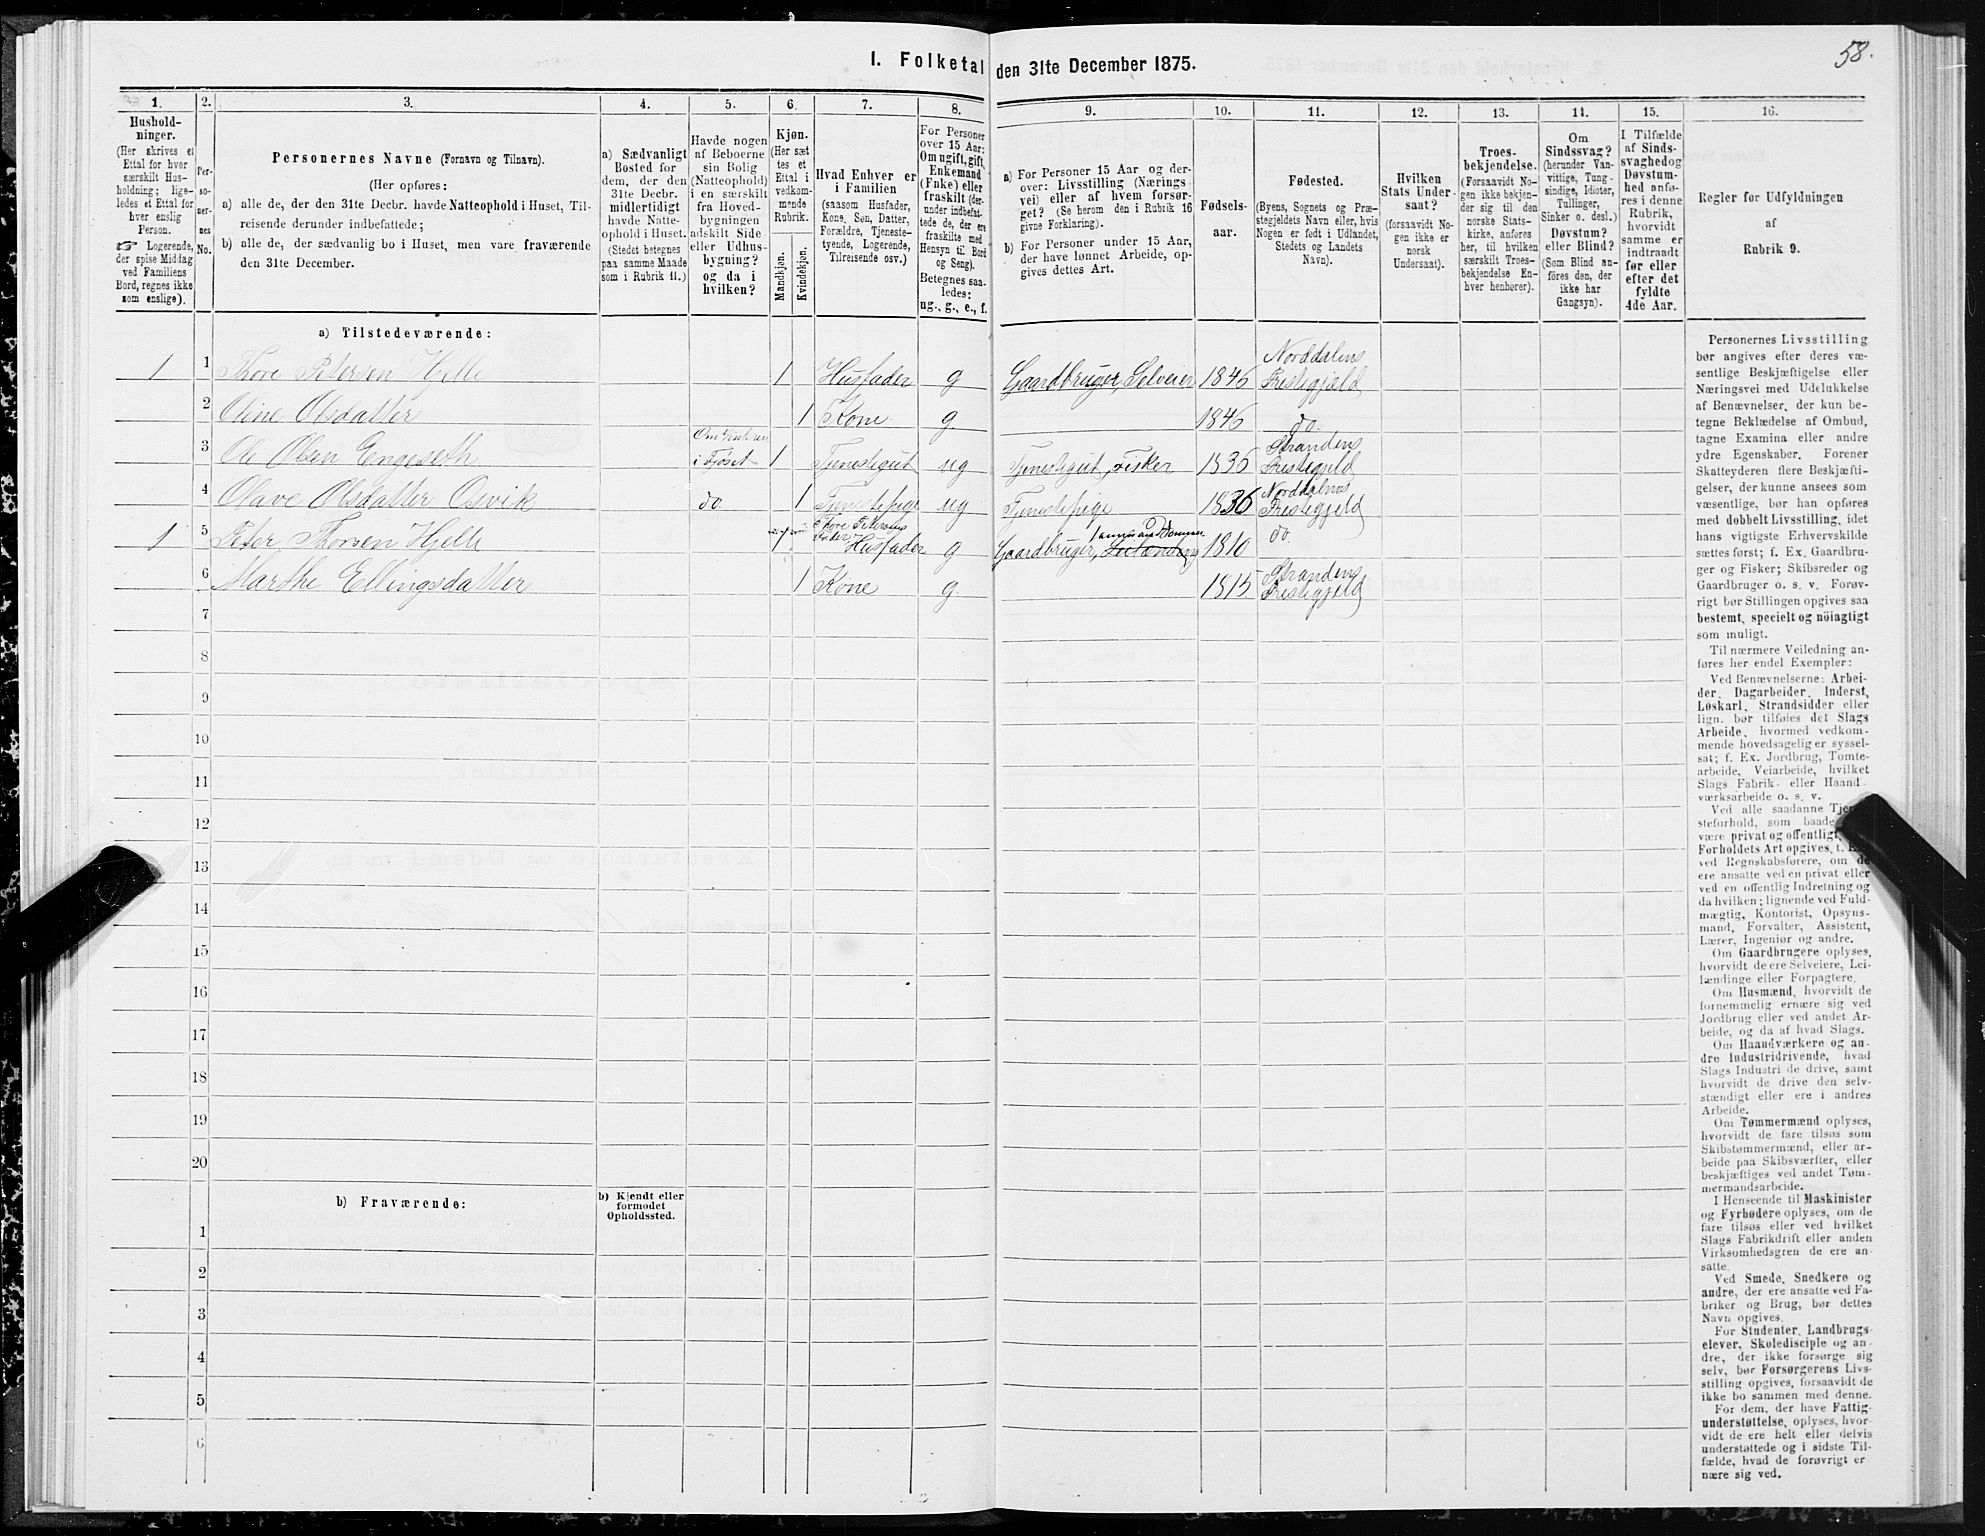 58.
1. Folketal den 31te December 1875.
1.
2.
3.
4.
5.
6.
7.
8.
9.
10.
11.
12.
13.
14.
15.
16.
Hushold-
ninger.
(Her skrives et
Ettal for hver
særskilt Hus-
holdning; lige-
ledes et Ettal for
hver enslig
Person.
☞ Logerende,
der spise Middag
ved Familiens
Bord, regnes ikke
som enslige).
Per-
so-
ner-
nes
No.
Personernes Navne (Fornavn og Tilnavn).
(Her opføres:
a) alle de, der den 31te Decbr. havde Natteophold i Huset, Til-
reisende derunder indbefattede;
b) alle de, der sædvanlig bo i Huset, men vare fraværende
den 31te December.
a) Sædvanligt
Bosted for
dem, der den
31te Decbr.
midlertidigt
havde Natte-
ophold i Huset.
(Stedet betegnes
paa samme Maade
som i Rubrik 11.)
Havde nogen
af Beboerne
sin Bolig
(Natteophold)
i en særskilt
fra Hoved-
bygningen
adskilt Side-
eller Udhus-
bygning?
og da i
hvilken?
Kjøn.
(Her sæt-
tes et
Ettal i
vedkom-
mende
Rubrik.
Mandkjøn.
Kvindekjøn.
Hvad Enhver er
i Familien
(saasom Husfader,
Kone, Søn, Datter,
Forældre, Tjeneste-
tyende, Logerende,
Tilreisende osv.)
For Personer
over 15 Aar:
Om ugift, gift,
Enkemand
(Enke) eller
fraskilt (der-
under indbefat-
tede de, der ere
fraskilte med
Hensyn til Bord
og Seng).
Betegnes saa-
ledes:
ug., g., e., f.
a) For Personer 15 Aar og der-
over: Livsstilling (Nærings-
vei) eller af hvem forsør-
get? (Se herom den i Rubrik 16
givne Forklaring).
b) For Personer under 15 Aar,
der have lønnet Arbeide, op-
gives dettes Art.
Fødsels-
aar.
Fødested.
(Byens, Sognets og Præ-
stegjeldets Navn eller, hvis
Nogen er født i Udlandet,
Stedets og Landets
Navn).
Hvilken
Stats Under-
saat?
(forsaavidt No-
gen ikke er
norsk
Undersaat).
Troes-
bekjendelse.
(Forsaavidt No-
gen ikke bekjen-
der sig til den
norske Stats-
kirke, anføres
her, til hvilken
særskilt Troes-
bekjendelse En-
hver henhører).
Om
Sindssvag?
(herunder Van-
vittige, Tung-
sindige, Idioter,
Tullinger,
Sinker o. desl.)
Døvstum?
eller Blind?
(Som Blind an-
føres den, der
ikke har
Gangsyn).
I Tilfælde
af Sinds-
svaghed og
Døvstum-
hed anfø-
res i denne
Rubrik,
hvorvidt
samme er
indtraadt
før eller
efter det
fyldte
4de Aar.
Regler for Udfyldningen
af
Rubrik 9.
a) Tilstedeværende:
1 1 Thore Petersen Hjelle 1 Husfader g Gaardbruger, Selveier 1846 Norddalens Prestegjeld
2 Oline Olsdatter 1 Kone g 1846 do.
3 Ole Olsen Engeseth i Fjøset 1 Tjenestegut ug Tjenestegut, Fisker 1836 Strandens Prestegjeld
4 Olave Olsdatter Osvik do. 1 Tjenestepige ug Tjenestepige 1836 Norddalens Prestegjeld
1 5 Peter Thorsen Hjelle 1 Thore Petersens Fader Husfader g Gaardbruger, 1810 do.
6 Marthe Ellingsdatter 1 Kone g. 1815 Strandens Prestegjeld
7
8
9
10
11
12
13
14
15
16
17
18
19
20
b) Fraværende:
b) Kjendt eller
formodet
Opholdssted.
1
2
3
4
5
6
Personernes Livsstilling
bør angives efter deres væ-
sentlige Beskjæftigelse eller
Næringsvei med Udelukkelse
af Benævnelser, der kun be-
tegne Beklædelse af Ombud,
tagne Examina eller andre
ydre Egenskaber. Forener
Skatteyderen flere Beskjæfti-
gelser, der kunne ansees som
væsentlige, bør han opføres
med dobbelt Livsstilling, idet
hans vigtigste Erhvervskilde
sættes først; f. Ex. Gaardbru-
ger og Fisker; Skibsreder og
Gaardbruger o. s. v. Forøv-
rigt bør Stillingen opgives saa
bestemt, specielt og nöiagtigt
som muligt.
Til nærmere Veiledning an-
føres her endel Exempler:
Ved Benævnelserne: Arbei-
der, Dagarbeider, Inderst,
Løskarl, Strandsidder eller
lign. bør tilføies det Slags
Arbeide, hvormed vedkom-
mende hovedsagelig er syssel-
sat; f. Ex. Jordbrug, Tomte-
arbeide, Veiarbeide, hvilket
Slags Fabrik- eller Haand-
værksarbeide o. s. v.
Ved alle saadanne
steforhold, som baade
være privat og offentligt,
Forholdets Art opgives, t.
ved Regnskabsførere, om de
ere ansatte ved en privat eller
ved en offentlig Indretning og
da hvilken; lignende ved Fuld-
mægtig, Kontorist, Opsyns-
mand, Forvalter, Assistent,
Lærer, Ingeniør og andre.
Om Gaardbrugere oplyses,
hvorvidt de ere Selveiere, Lei-
lændinge eller Forpagtere.
Om Husmænd, hvorvidt de
fornemmelig ernære sig ved
Jordbrug eller ved andet Ar-
beide, og da af hvad Slags.
Om Haandværkere og an-
dre Industridrivende, hvad
Slags Industri de drive, samt
hvorvidt de drive den selv-
stændigt eller ere i andres
Arbeide.
Om Tømmermænd oplyses,
hvorvidt de fare tilsøs som
Skibstømmermænd, eller ar-
beide paa Skibsværfter, eller
beskjæftiges ved andet Tøm-
mermandsarbeide.
I Henseende til Maskinister
og Fyrbødere oplyses, om de
fare tilsøs eller ved hvilket
Slags Fabrikdrift eller anden
Virksomhedsgren de ere an-
satte.
Ved Smede, Snedkere og
andre, der ere ansatte ved Fa-
briker og Brug, bør dettes
Navn opgives.
For Studenter, Landbrugs-
elever, Skoledisciple og an-
dre, der ikke forsørge sig
selv, bør Forsørgerens Livs-
stilling opgives, forsaavidt de
ikke bo sammen med denne.
For dem, der have Fattig-
understøttelse, oplyses, hvor-
vidt de ere helt eller delvis
understøttede og i sidste Til-
fælde, hvad de forøvrigt er-
nære sig ved.